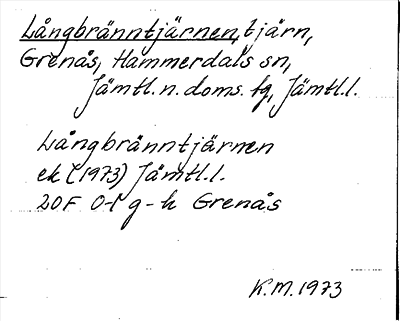 Långbränntjärnen, tjärn,
Grenås, Hammerdals sn,
Jämtl. n. doms. tg, Jämtl.l.
Långbränntjärnen
ek (1973) Jämtl.l.
20F 0-1 g-h Grenås
K.M. 1973